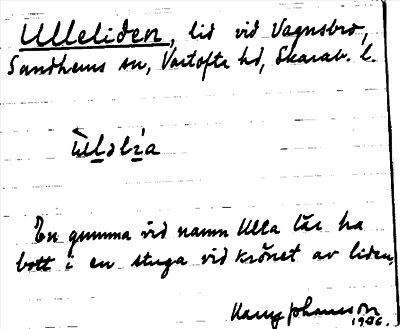 Ulleliden, lid vid Vagnsbro,
Sandhems sn, Vartofta hd, Skarab. l.
En gumma vid namn Ulla lär ha
bott i en stuga vid krönet av liden.
Harry Johansson
1926.